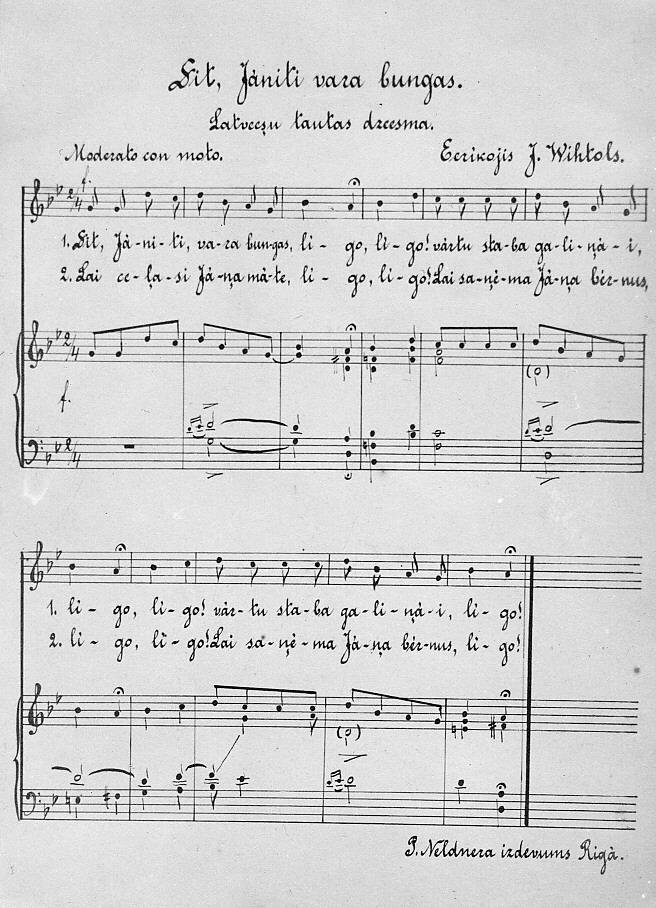 Sit, Jàniti vara bungas.
Latveeşu tautas dzeesma.
Moderato con moto.
Eerikojis J. Wihtols.
f.
2/4
1. Sit, Jà-ni-ti, va-ra bun-gas, li - go, li - go! vàr-tu sta-ba ga-li-ņà-i,
2. Lai ce-ļa-si Jà-ņa mà-te, li - go, li - go! Lai sa-ņè-ma Jà-ņa bèr-nus,
2/4
f.
2/4
1. li - go, li - go! vàr-tu sta-ba ga-li-ņà-i, li-go!
2. li - go, li - go! Lai sa-ņè-ma Jà-ņa bèr-nus, li-go!
P. Neldnera izdevums Rigà.